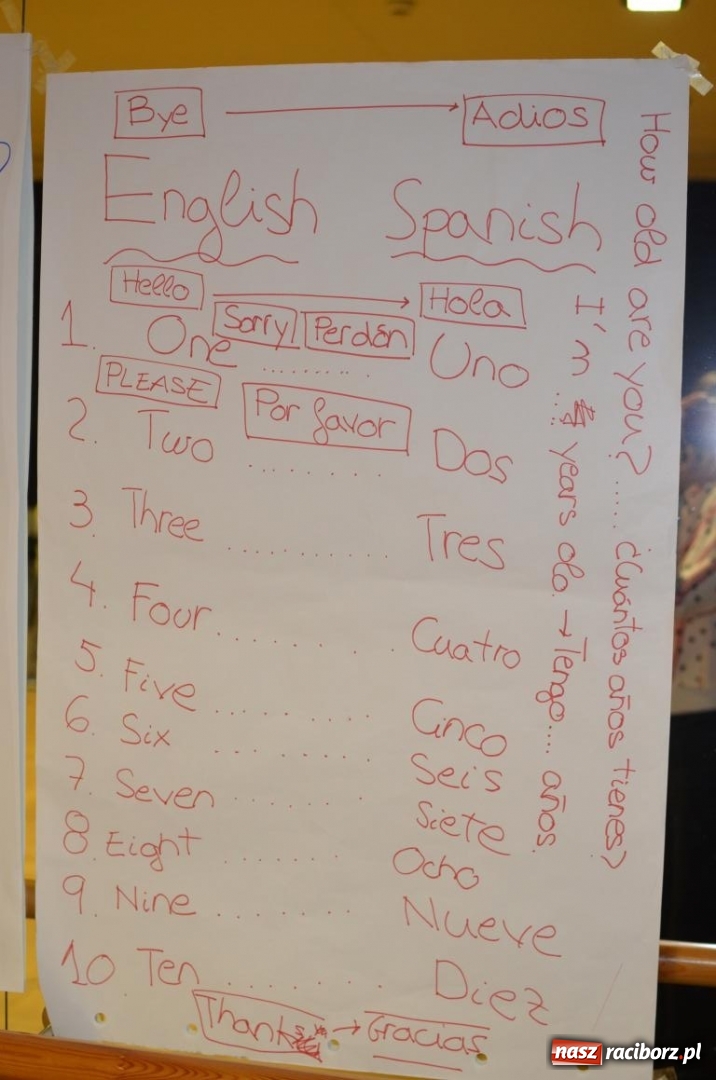 Bye → Adios
English Spanish
Hello → Hola
Sorry Perdón
1. One ......... Uno
PLEASE Por favor
2. Two ........ Dos
3. Three ........... Tres
4. Four .......... Cuatro
5. Five ......... Cinco
6. Six ......... Seis
7. Seven ....... Siete
8. Eight ....... Ocho
9. Nine ........ Nueve
10 Ten ........ Diez
Thanks → Gracias
How old are you? ..... ¿Cuántos años tienes?
I'm ... years old. → Tengo.... años.
nasz raciborz.pl